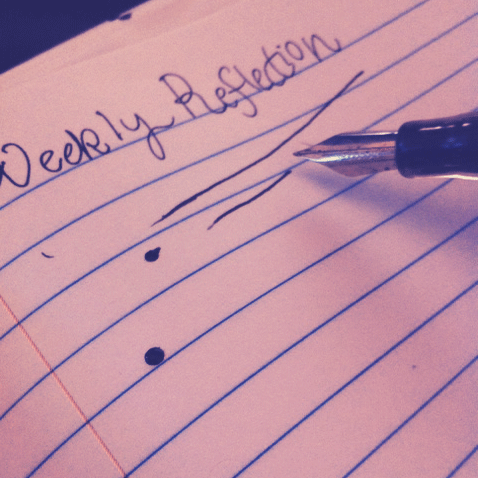 Weekly Reflection